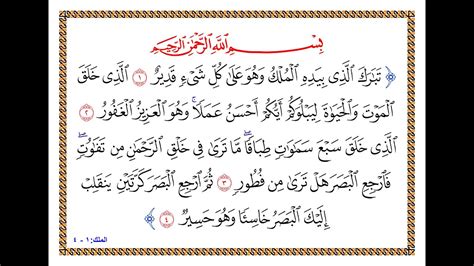 بِسْمِ ٱللَّهِ ٱلرَّحْمَٰنِ ٱلرَّحِيمِ
تَبَٰرَكَ ٱلَّذِي بِيَدِهِ ٱلْمُلْكُ وَهُوَ عَلَىٰ كُلِّ شَيْءٍ قَدِيرٌ ١ ٱلَّذِي خَلَقَ
ٱلْمَوْتَ وَٱلْحَيَوٰةَ لِيَبْلُوَكُمْ أَيُّكُمْ أَحْسَنُ عَمَلًا ۚ وَهُوَ ٱلْعَزِيزُ ٱلْغَفُورُ ٢
ٱلَّذِي خَلَقَ سَبْعَ سَمَٰوَٰتٍ طِبَاقًا ۖ مَّا تَرَىٰ فِي خَلْقِ ٱلرَّحْمَٰنِ مِن تَفَٰوُتٍ ۖ
فَٱرْجِعِ ٱلْبَصَرَ هَلْ تَرَىٰ مِن فُطُورٍ ٣ ثُمَّ ٱرْجِعِ ٱلْبَصَرَ كَرَّتَيْنِ يَنقَلِبْ
إِلَيْكَ ٱلْبَصَرُ خَاسِئًا وَهُوَ حَسِيرٌ ٤
الملك: ١ - ٤